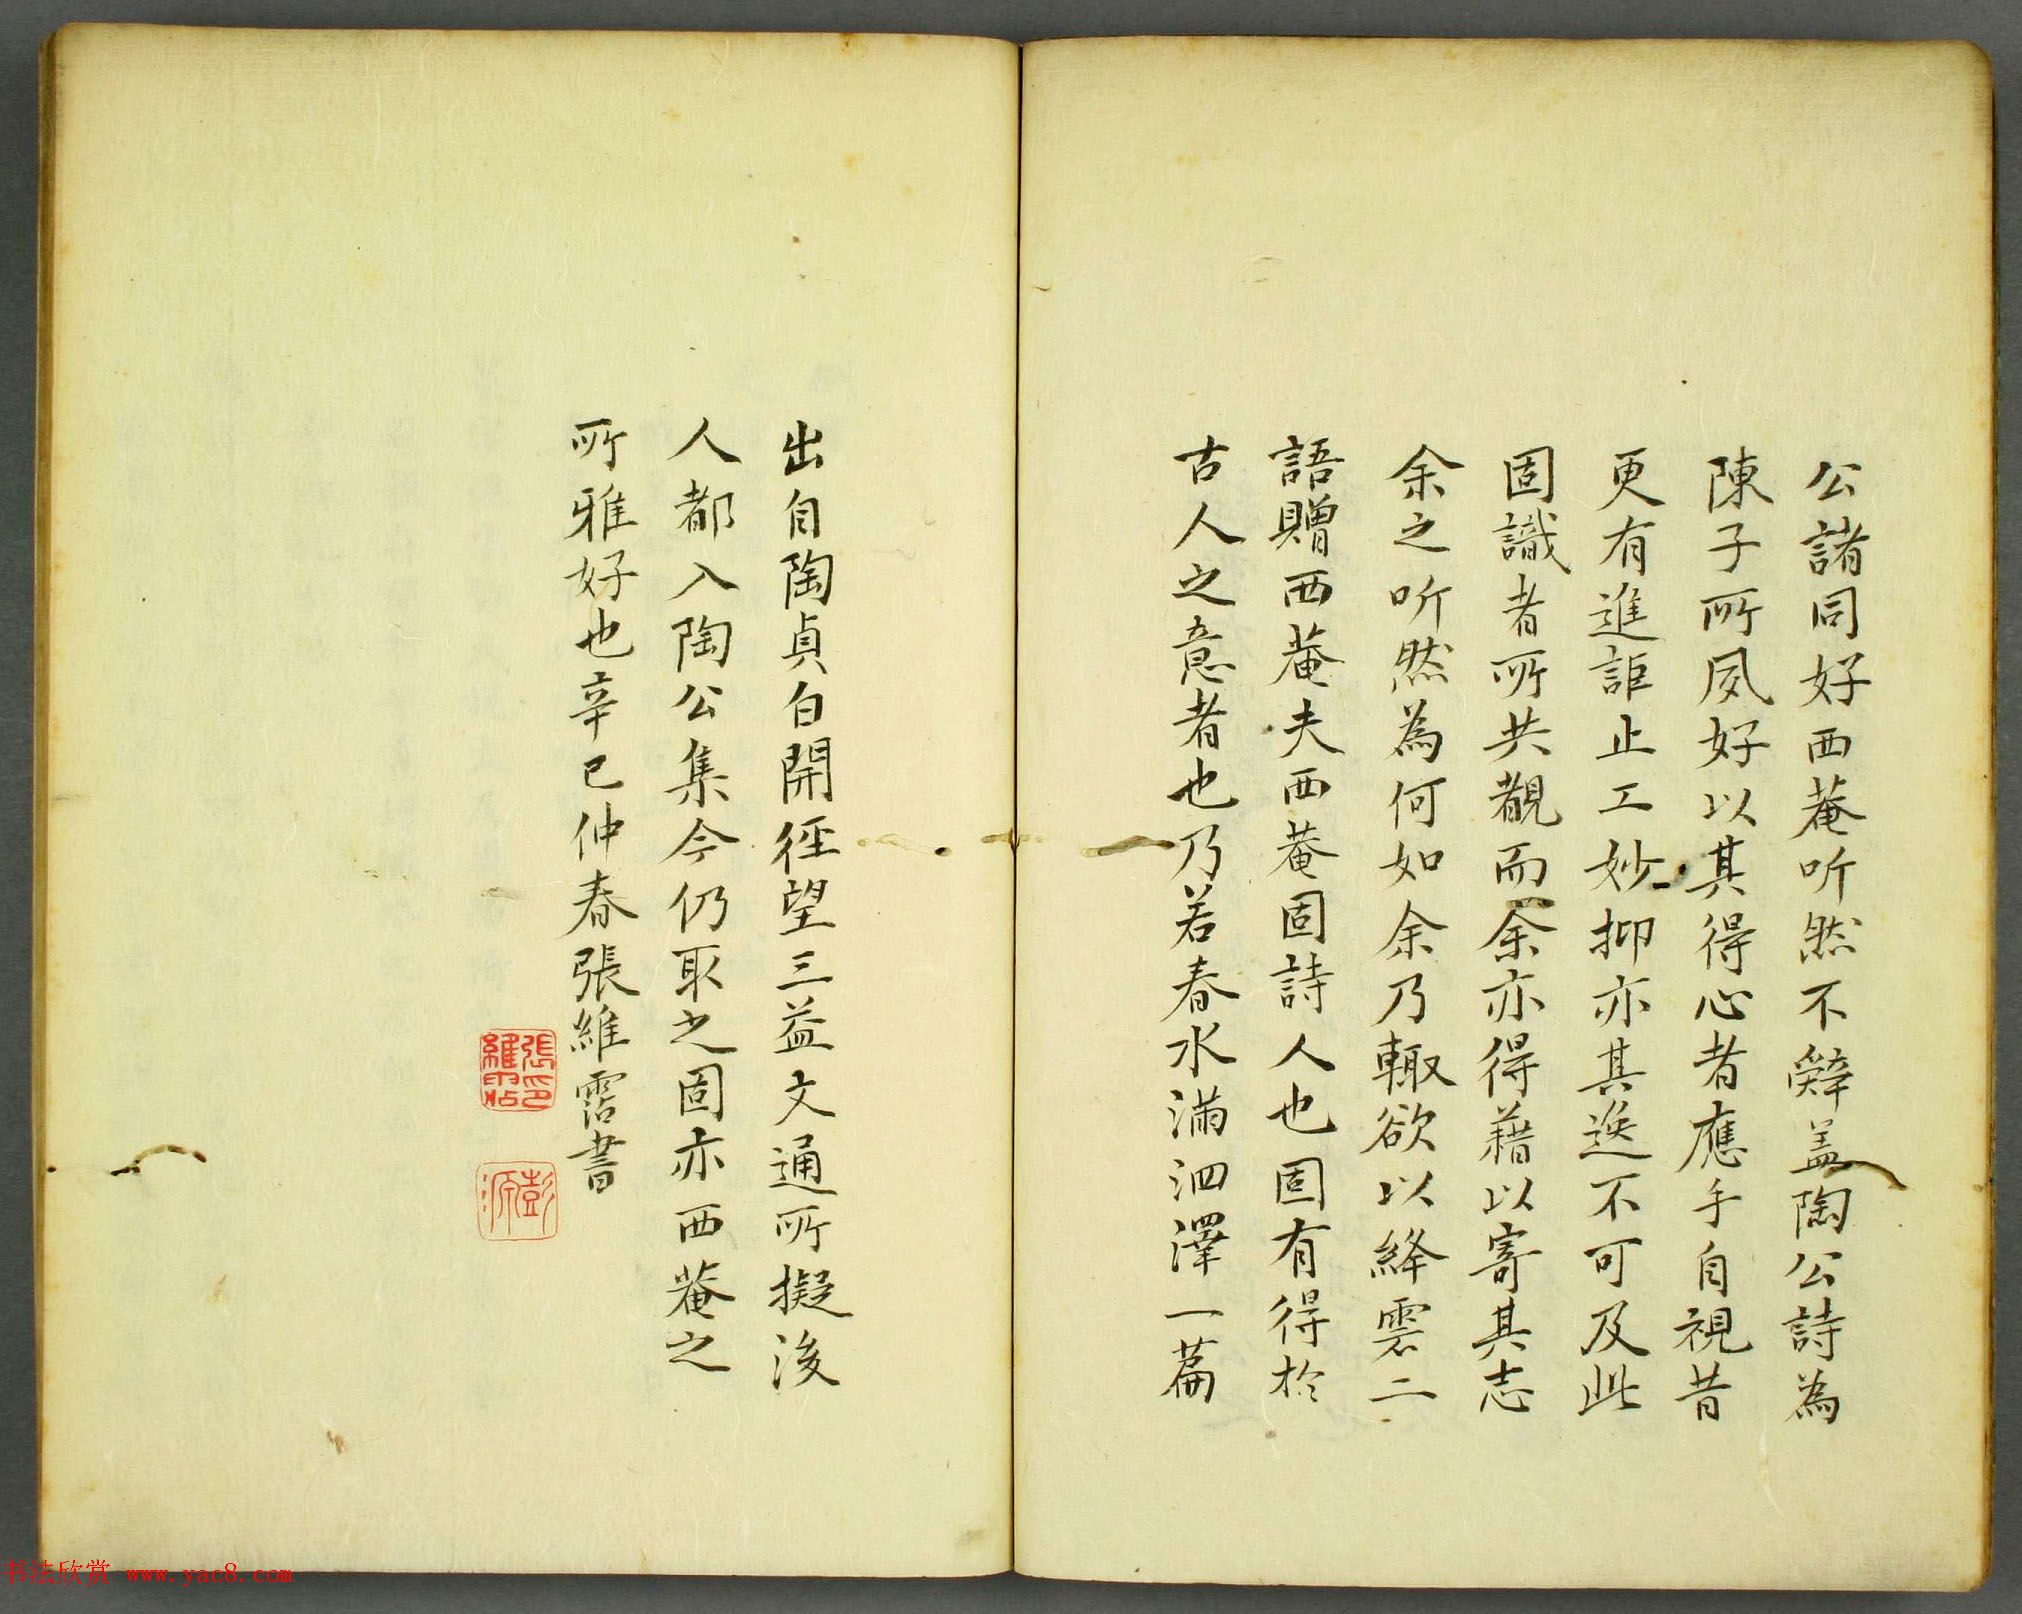 公諸同好西菴听然不辭盖陶公詩為
陳子所夙好以其得心者應手自視昔
更有進詎止工妙抑亦其逸不可及此
固識者所共覩而余亦得藉以寄其志
余之听然為何如余乃輙欲以絳雲二
語贈西菴夫西菴固詩人也固有得於
古人之意者也乃若春水滿泗澤一篇
出自陶貞白開徑望三益文通所擬後
人都入陶公集今仍取之固亦西菴之
所雅好也辛巳仲春張維霑書
張維霑印
彭源
书法欣赏 www.yac8.com